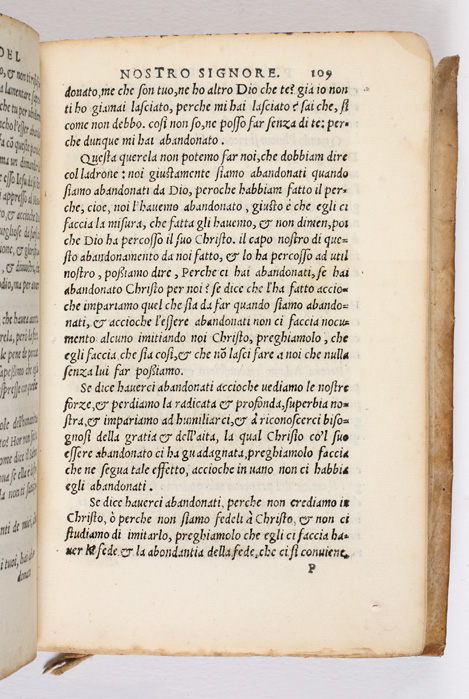 DEL
NOSTRO SIGNORE. 109
donato, me che son tuo, ne ho altro Dio che te? già io non
ti ho giamai lasciato, perche mi hai lasciato é sai che, sì
come non debbo. così non so, ne posso far senza di te: per=
che dunque mi hai abandonato.
Questa querela non potemo far noi, che dobbiam dire
col ladrone: noi giustamente siamo abandonati quando
siamo abandonati da Dio, peroche habbiam fatto il per=
che, cioe, noi l'hauemo abandonato, giusto é che egli ci
faccia la misura, che fatta gli hauemo, & non dimen, poi
che Dio ha percosso il suo Christo. il capo nostro di que=
sto abandonamento da noi fatto, & lo ha percosso ad util
nostro, possiamo dire, Perche ci hai abandonati, se hai
abandonato Christo per noi? se dice che l'ha fatto accio=
che impariamo quel che sia da far quando siamo abando=
nati, & accioche l'essere abandonati non ci faccia nocu=
mento alcuno imitando noi Christo, preghiamolo, che
egli faccia che sia così, & che nō lasci fare a noi che nulla
senza lui far possiamo.
Se dice hauerci abandonati accioche uediamo le nostre
forze, & perdiamo la radicata & profonda, superbia no=
stra, & impariamo ad humiliarci, & à riconoscerci biso=
gnosi della gratia & dell'aita, la qual Christo co'l suo
essere abandonato ci ha guadagnata, preghiamolo faccia
che ne segua tale effetto, accioche in uano non ci habbia
egli abandonati.
Se dice hauerci abandonati, perche non crediamo in
Christo, ò perche non siamo fedeli à Christo, & non ci
studiamo di imitarlo, preghiamolo che egli ci faccia ha=
uer la fede & la abondantia della fede, che ci si conuiene,
P
donato